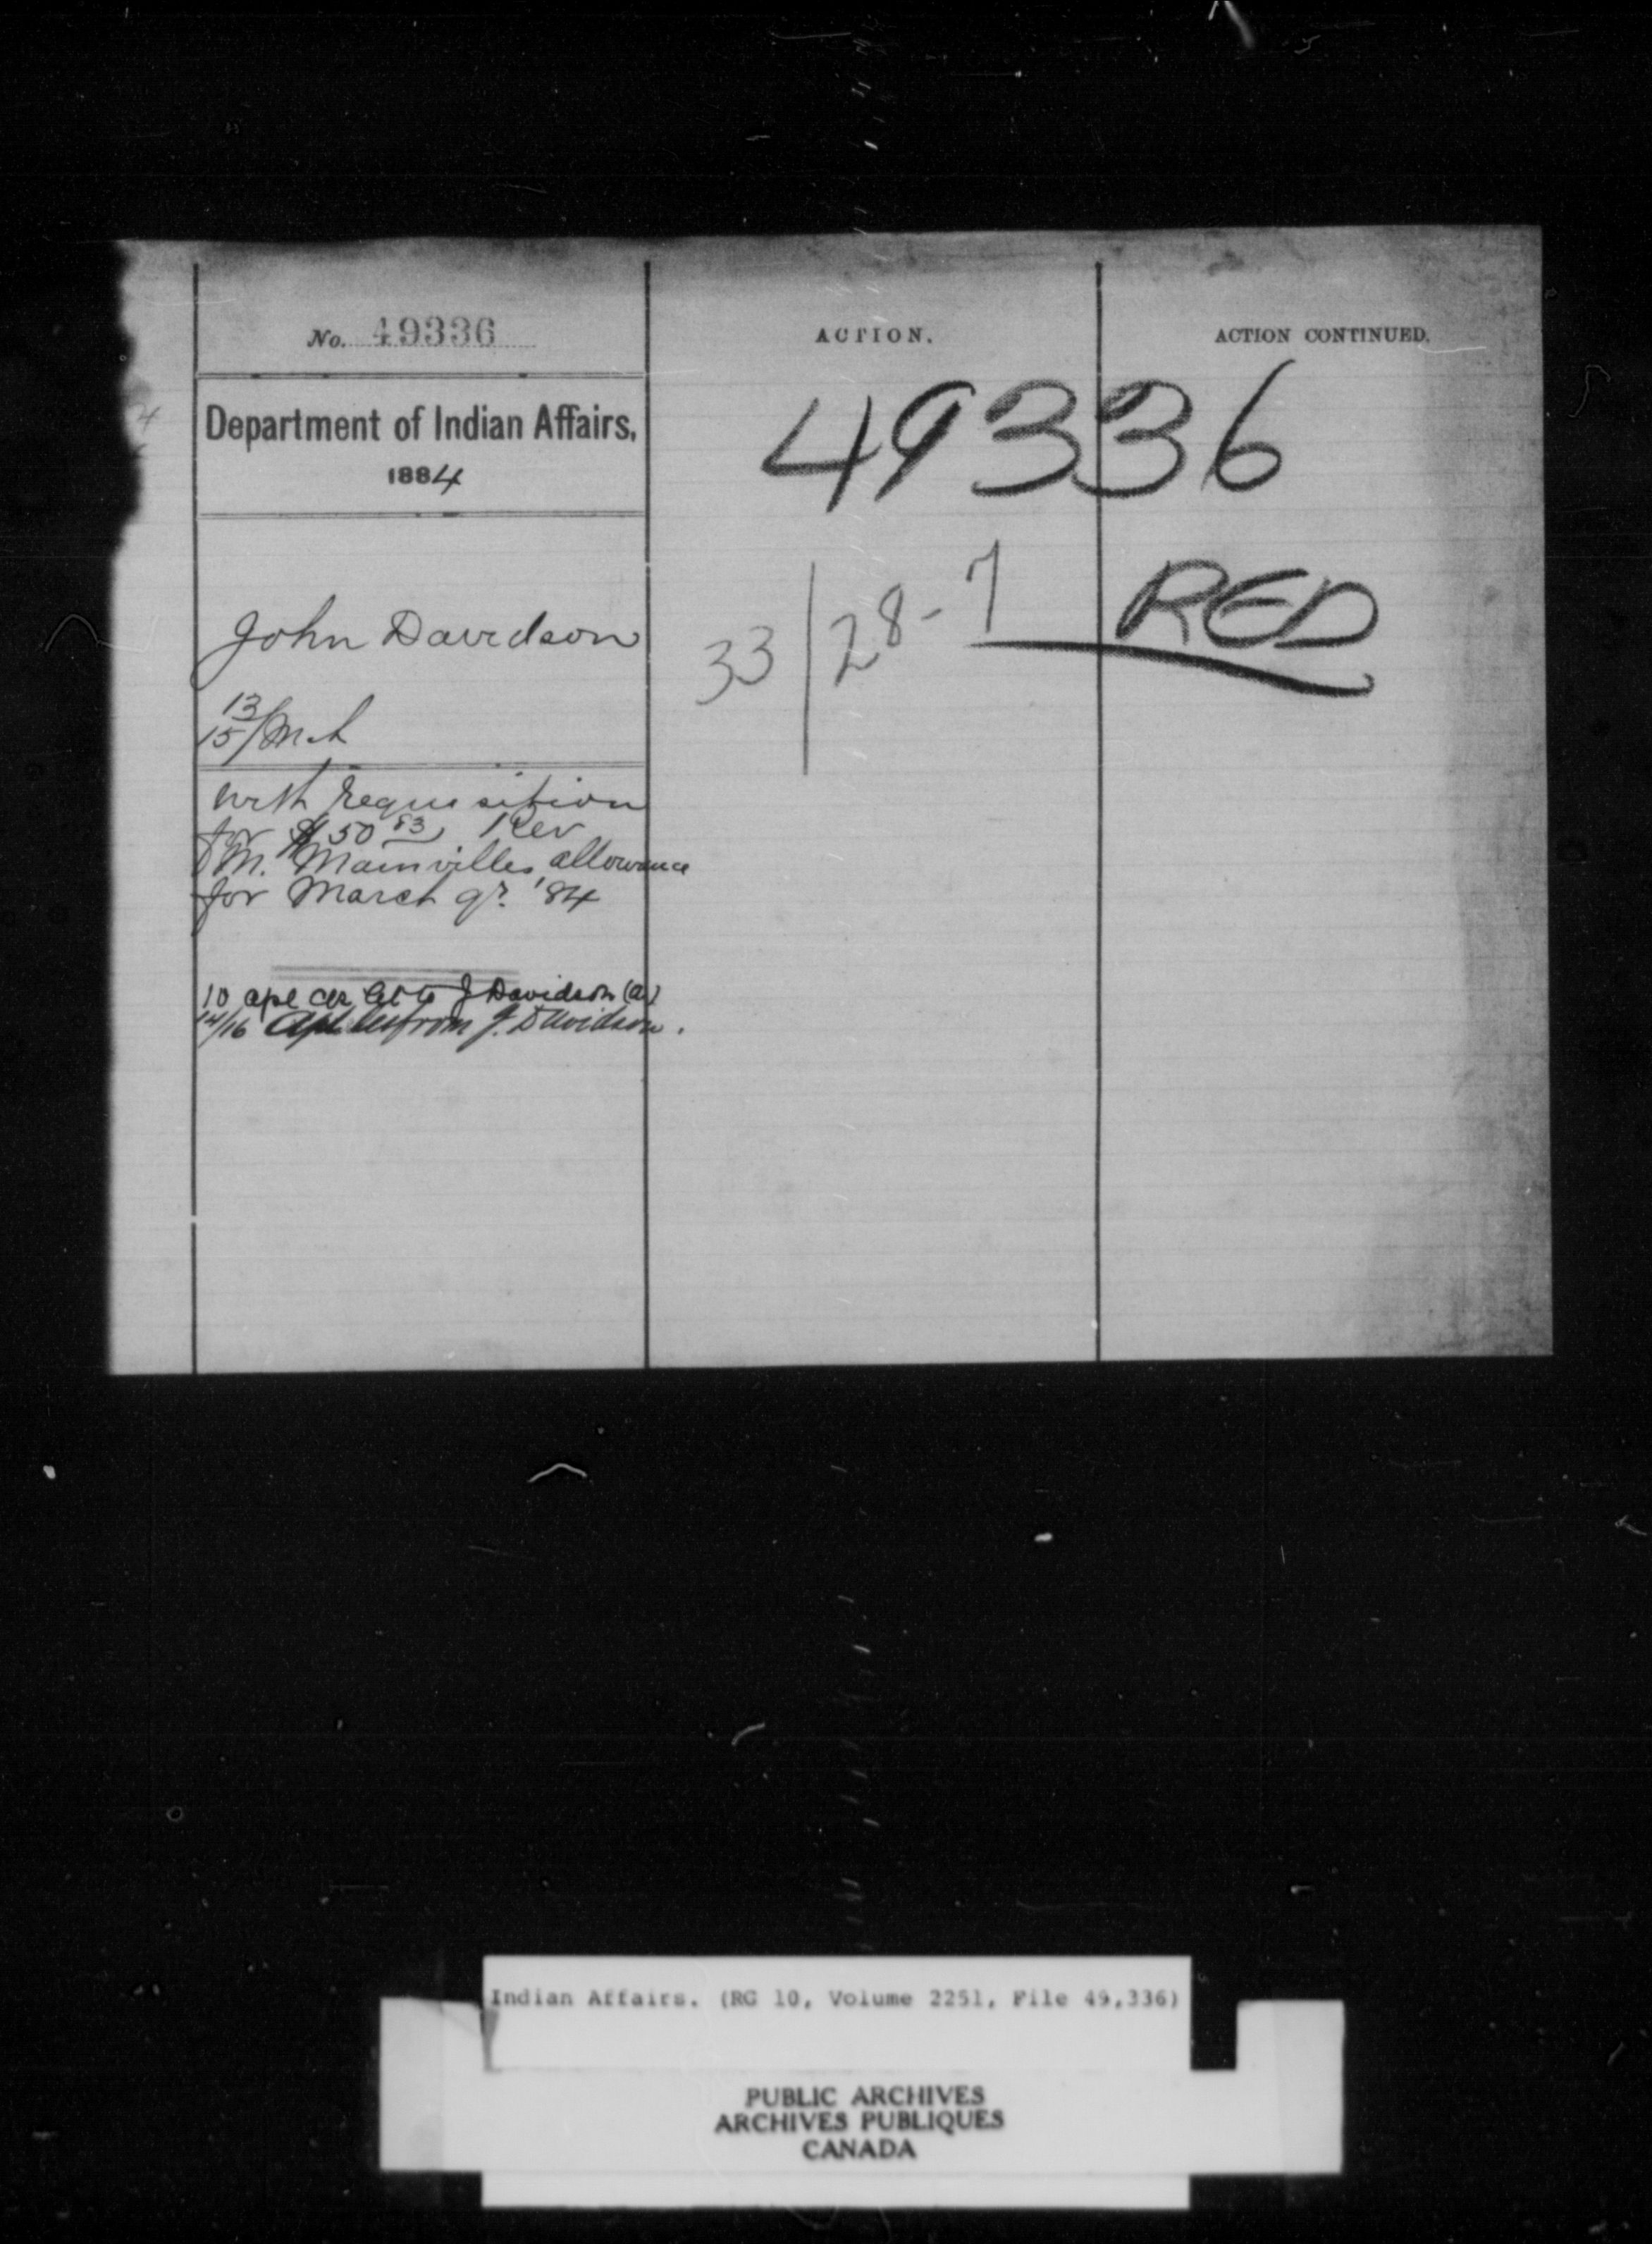 No. 49336
ACTION.
ACTION CONTINUED.
Department of Indian Affairs,
1884
49336
33/28-7 RED
John Davidson
13/15/Mch
With requisition
for $50 83, Rev
M. Mainvilles allowance
for March qr. '84
10 apl to J Davidson (a)
14/16 Apl from J. Davidson.
Indian Affairs. (RG 10, Volume 2251, File 49,336)
PUBLIC ARCHIVES
ARCHIVES PUBLIQUES
CANADA